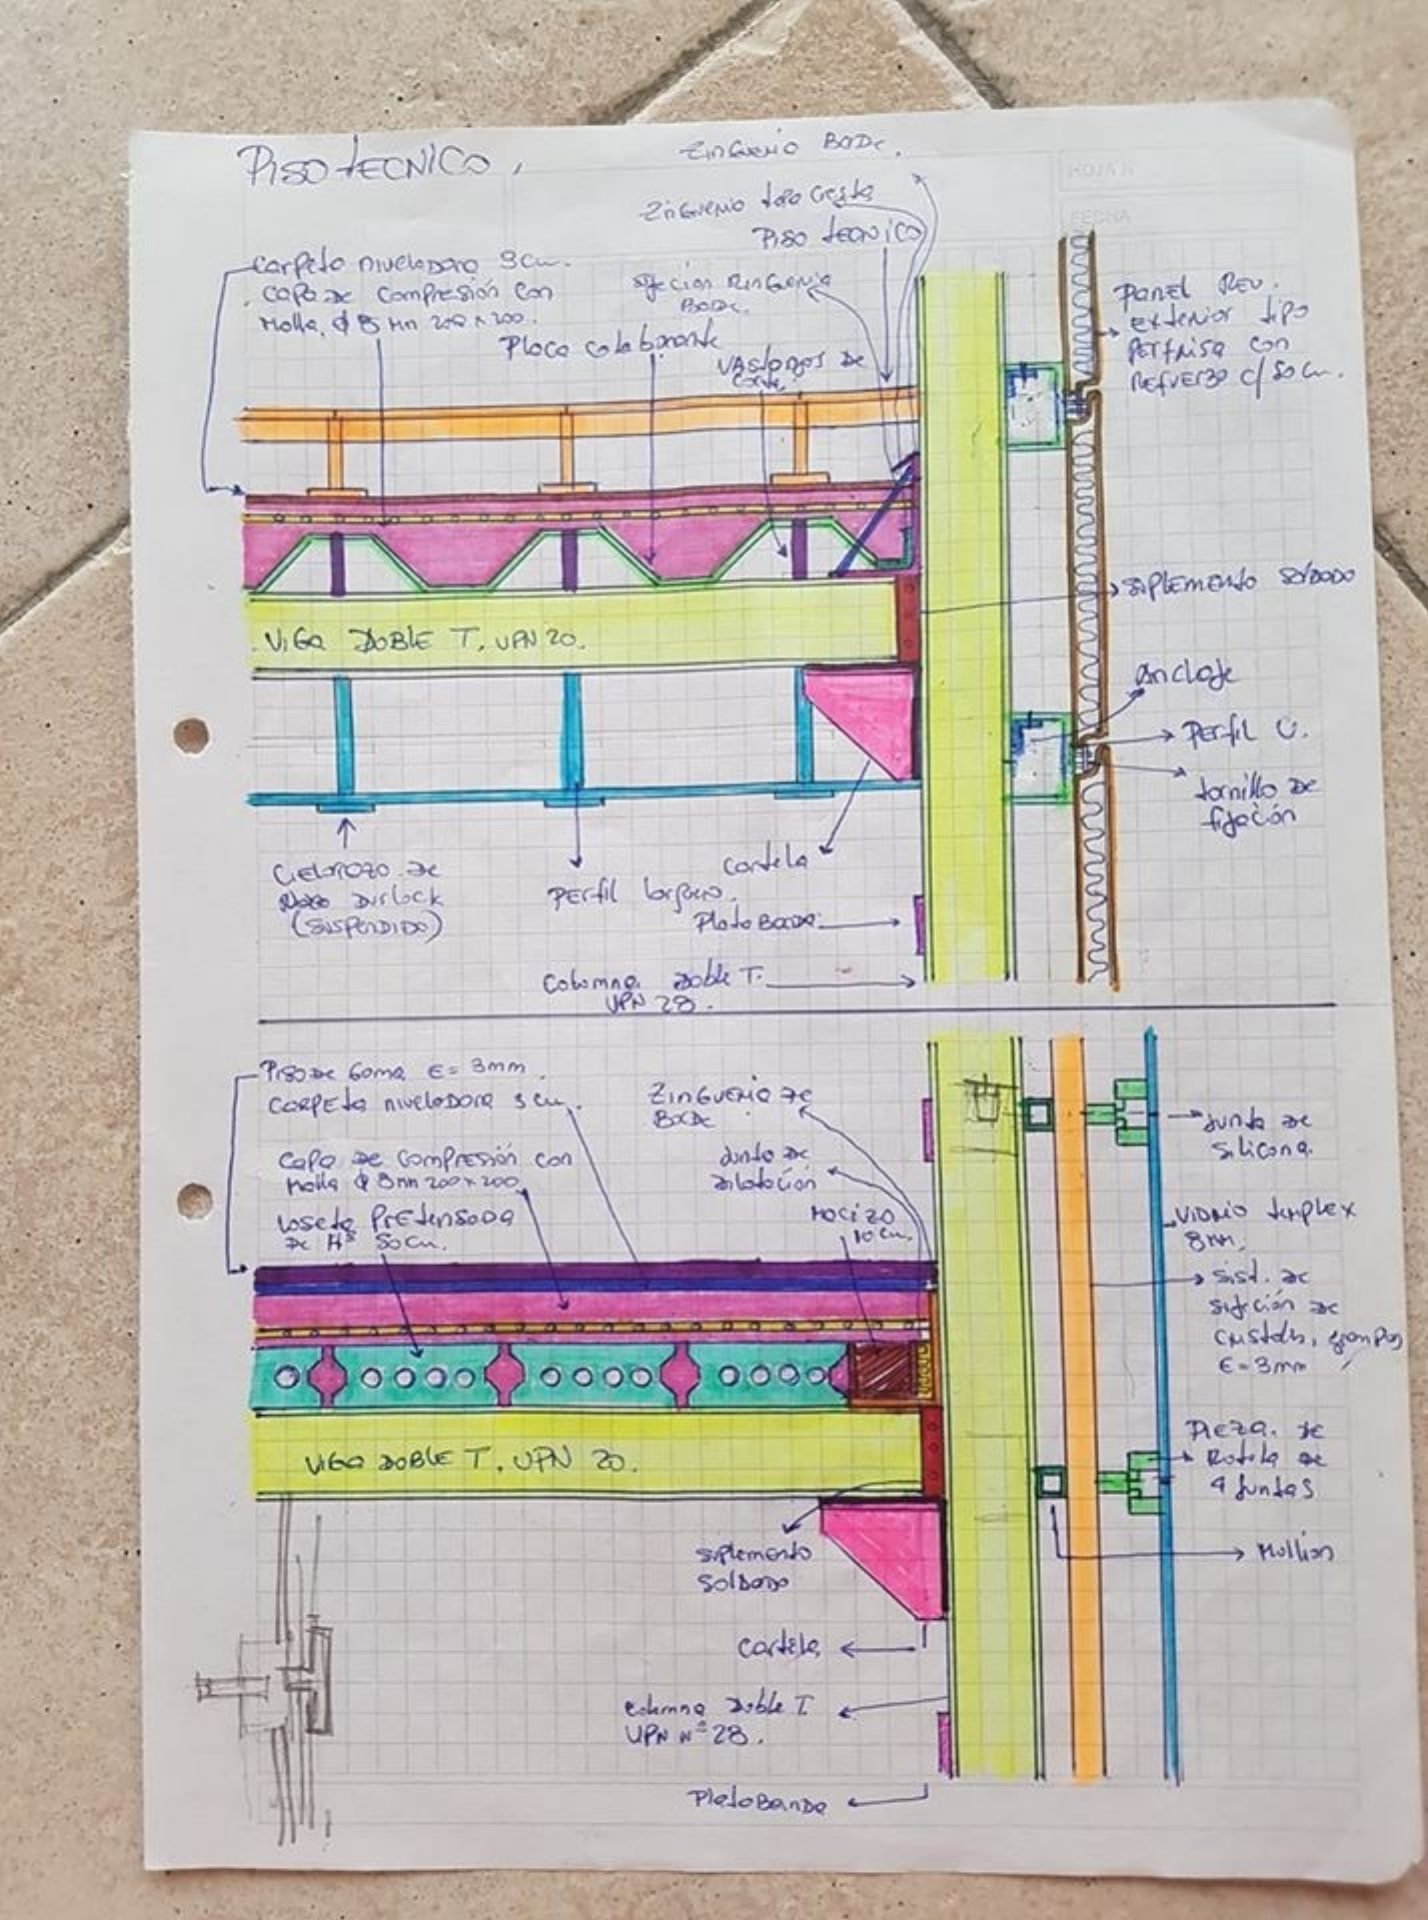 PISO TECNICO.
Zinguería BORDE.
Zinguería tipo cresta
Piso tecnico
Carpeta niveladora 3cm.
Capa de compresión con
Malla. ϕ 8 mm 200 x 200.
sujecion Zinguería
BORDE.
Placa colaborante
VASTAGOS DE
Corte.
Panel Rev.
exterior tipo
Perfrisa con
Refuerzo c/50cm.
VIGA DOBLE T. UPN 20.
suplemento soldado
anclaje
Perfil U.
tornillo de
fijación
Cielorozo de
Durlock
(SUSPENDIDO)
Perfil
Cartela
PlatoBanda
Columna Doble T.
UPN 28.
Piso de Goma E= 3mm.
CARPETA niveladora 3 cm.
Zinguería de
BORDE
Capa de compresión con
Malla ϕ 8mm 200x200
Junta de
dilatación
Loseta PretensADA
de Hº 50cm.
Macizo
10cm.
Junta de
silicona.
VIDRIO templex
8mm.
Sist. de
sujeción de
cristales, grampas
E=3mm
VIGA DOBLE T. UPN 20.
Pieza. de
Rotula de
4 Juntas
suplemento
soldado
Mullion
Cartela
columna Doble T.
UPN Nº 28.
PlatoBanda